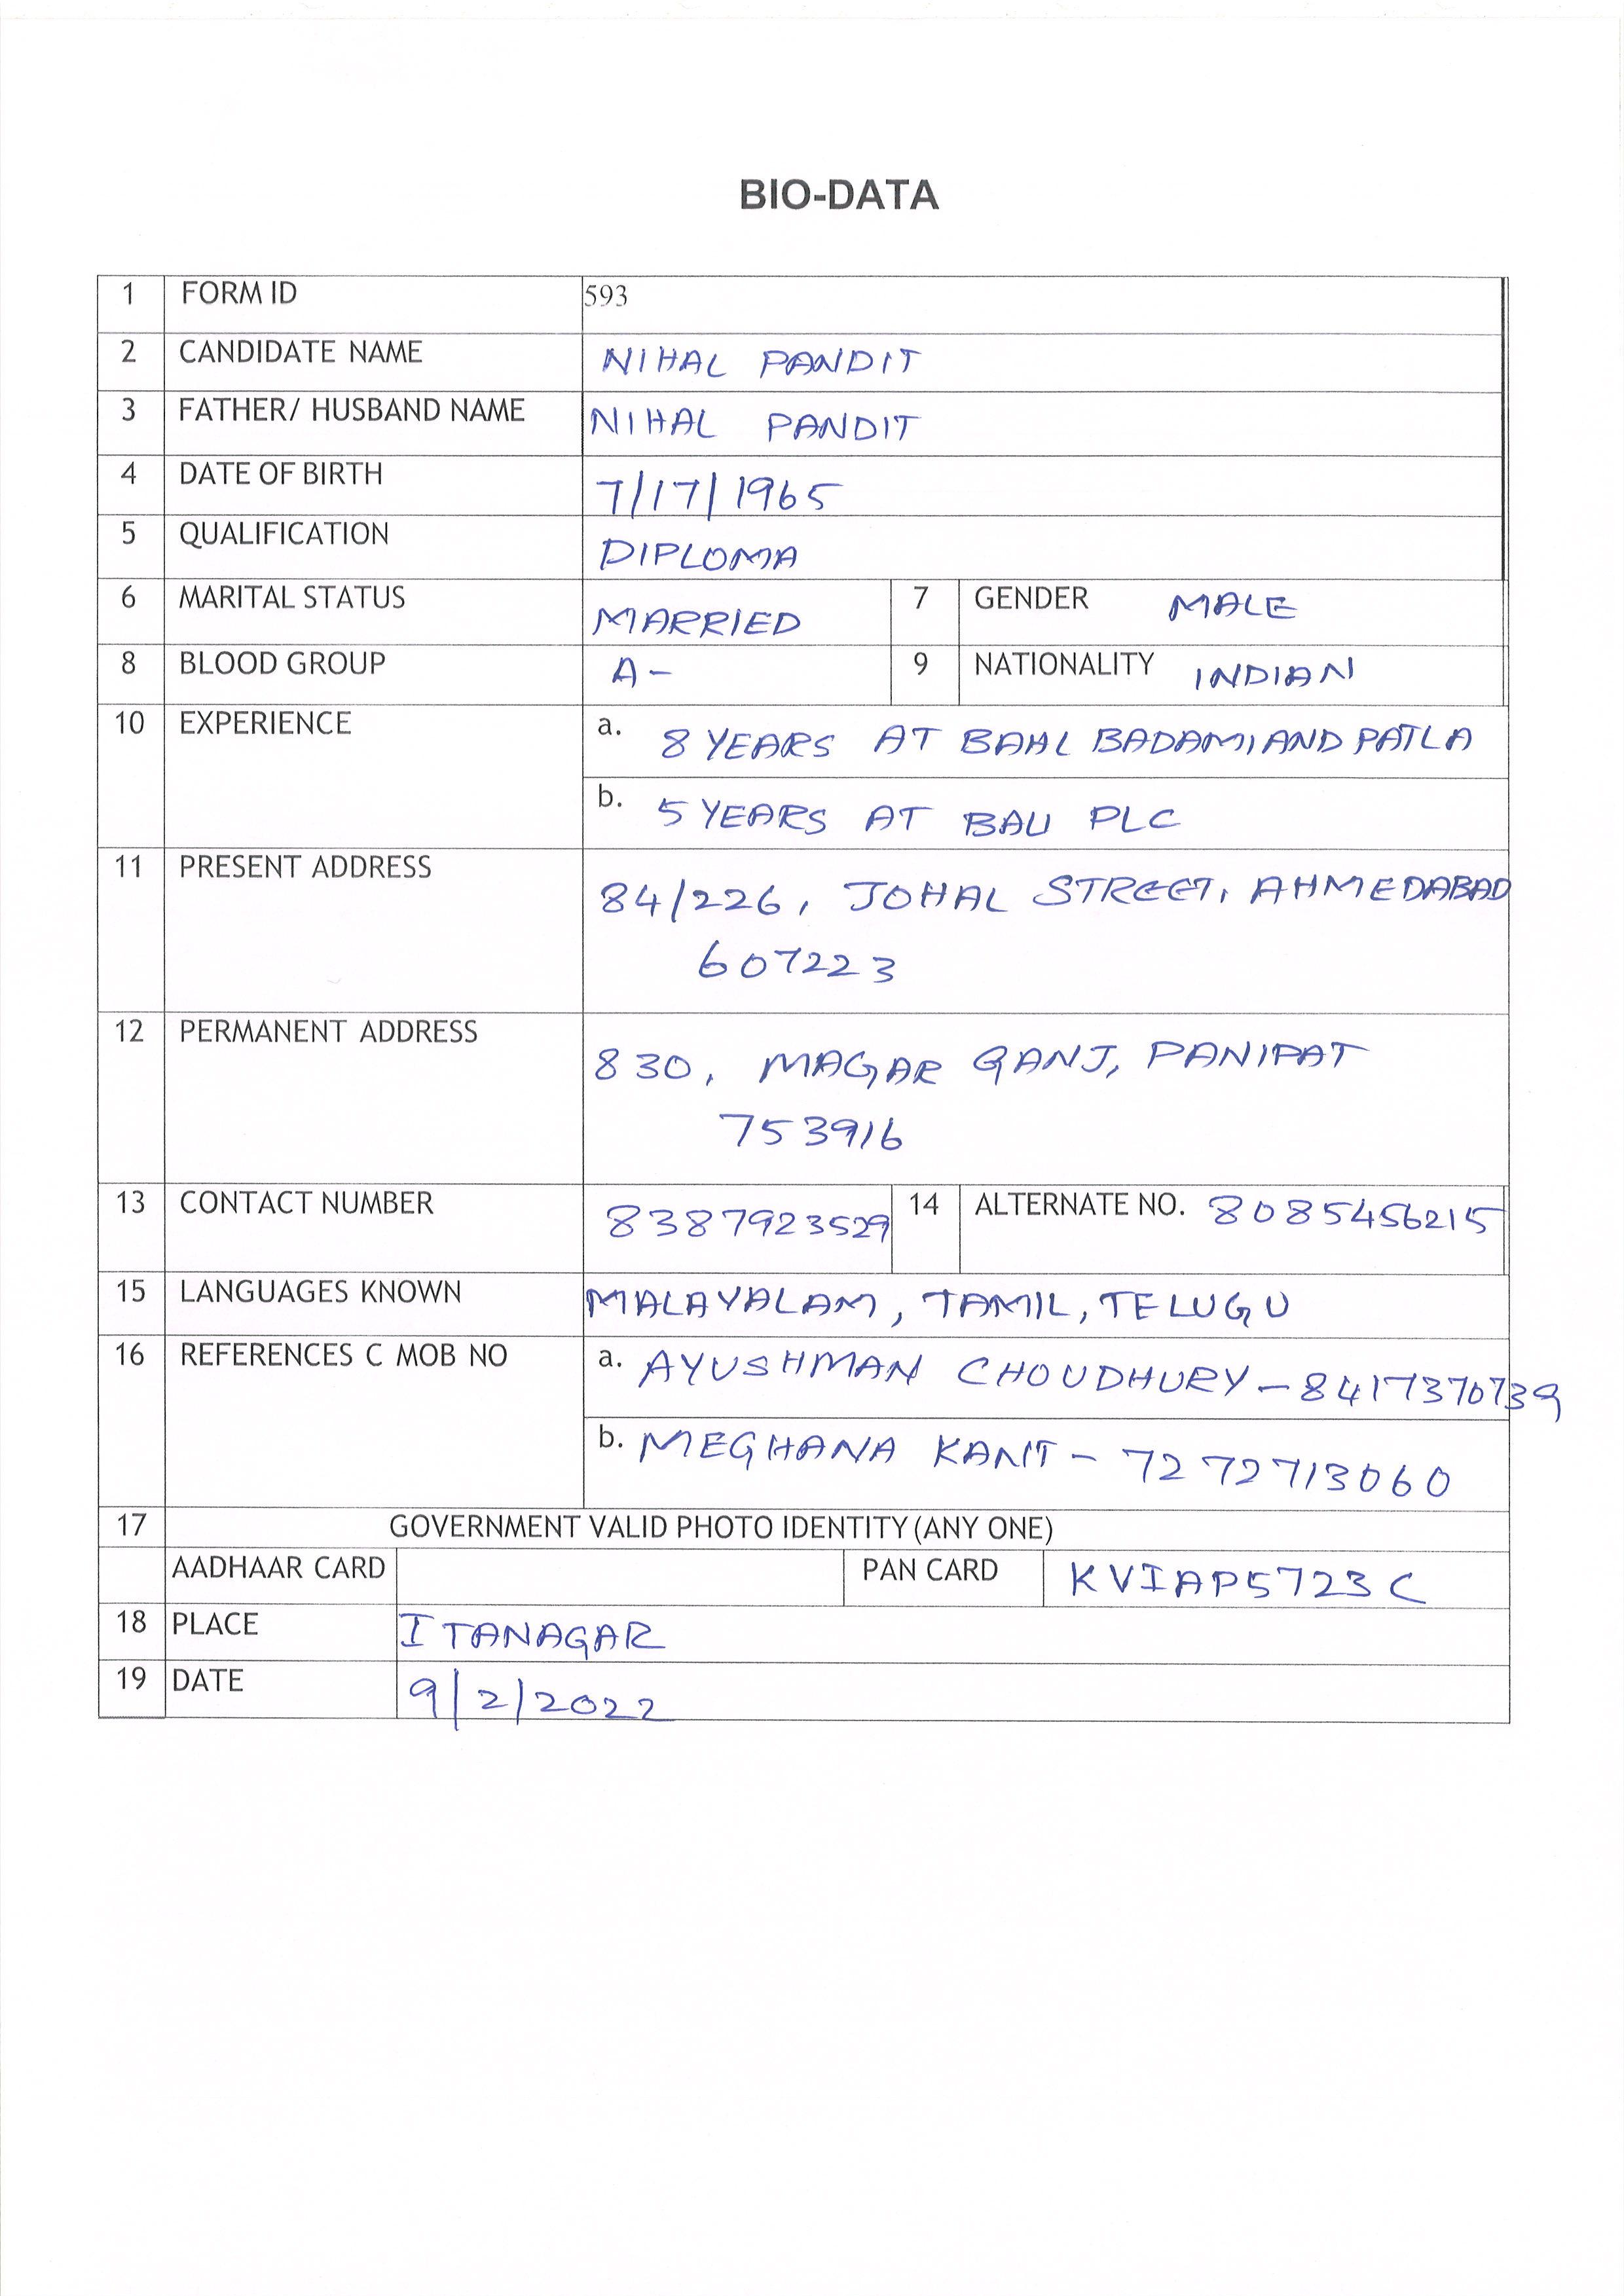 BIO-DATA
1 FORM ID 593
2 CANDIDATE NAME NIHAL PANDIT
3 FATHER/ HUSBAND NAME NIHAL PANDIT
4 DATE OF BIRTH 7/17/1965
5 QUALIFICATION DIPLOMA
6 MARITAL STATUS MARRIED 7 GENDER MALE
8 BLOOD GROUP A- 9 NATIONALITY INDIAN
10 EXPERIENCE a. 8 YEARS AT BAHL BADAMI AND PATLA
b. 5 YEARS AT BAU PLC
11 PRESENT ADDRESS 84/226, JOHAL STREET, AHMEDABAD
607223
12 PERMANENT ADDRESS 830, MAGAR GANJ, PANIPAT
753916
13 CONTACT NUMBER 8387923529 14 ALTERNATE NO. 8085456215
15 LANGUAGES KNOWN MALAYALAM, TAMIL, TELUGU
16 REFERENCES C MOB NO a. AYUSHMAN CHOUDHURY - 8417370739
b. MEGHANA KANT - 7272713060
17 GOVERNMENT VALID PHOTO IDENTITY (ANY ONE)
AADHAAR CARD PAN CARD KVIAP5723C
18 PLACE ITANAGAR
19 DATE 9/2/2022